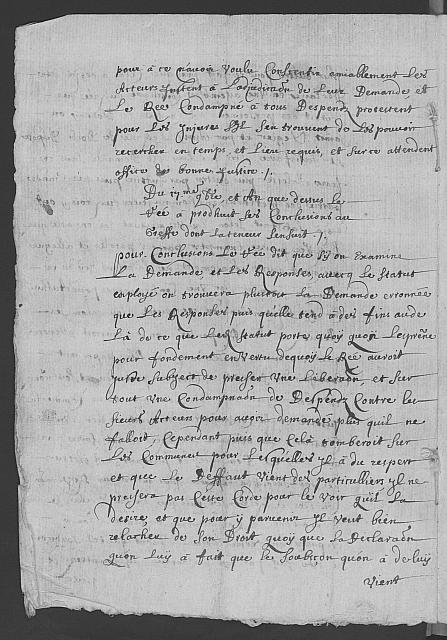 pour à ce n'avoir voulu Consentir amiablement Les
Acteurs Insistent à L'adjudication de Leur Demande et
Le Rée Condampné à tous Despends protestent
pour Les Injures s'Il s'en trouvent de Les pouvoir
rechercher en temps et Lieu requis, et sur ce attendent
office de bonne Justice /.
Du 17me 9bre et An que dessus le
Rée à prodhuit ses Conclusions au
Greffe dont la teneur s'ensuit /.
pour Conclusions Le Rée dit que sy on Examine
La Demande et Les Responses, avecq Le Statut
employé on trouvera plustost La Demande erronnée
que Les Responses puis qu'elle tend à des fins aude
Là de ce que Les statut porte, quoy qu'on Le prene
pour fondement en Vertu dequoy Le Rée auroit
Juste Subject de preiser Une Liberaōn et sur
tout Une Condampnaōn de Despends Contre les
sieurs Acteurs pour avoir demandé plus qu'il ne
falloit, Cependant puis que Cela tomberoit sur
Les Communeut pour Lesquelles yl à du respect
et que Le Deffaut Vient des particulliers yl ne
preisera pas Cette Corde pour le voir qu'il La
desire et que pour y parvenir yl veut bien
relacher de son Droit quoy que La Declaraōn
quon Luy à fait que le soubçon qu'on à de luy
Vient